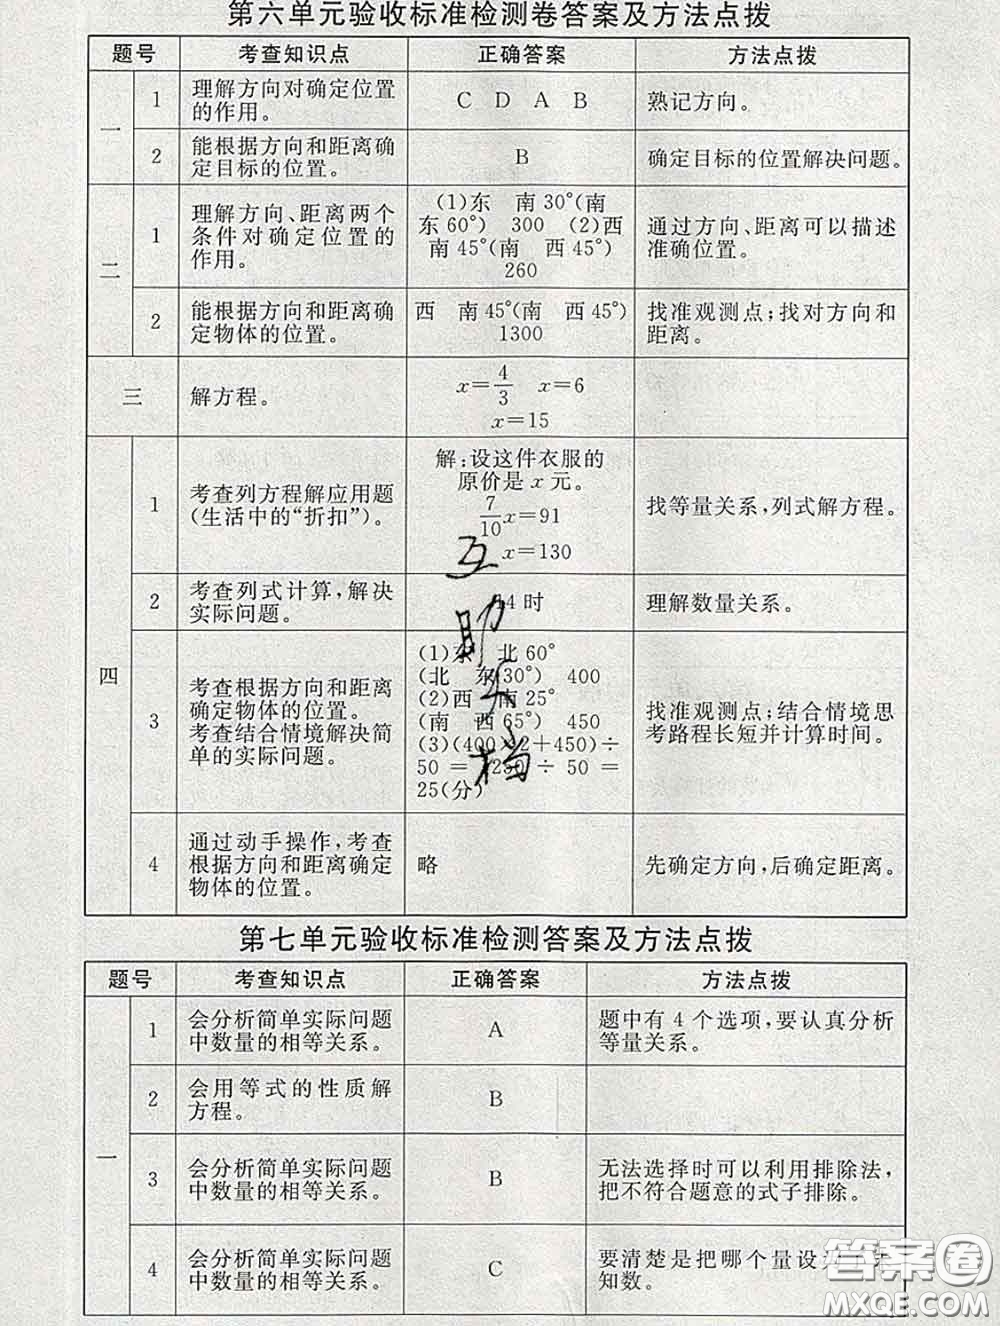 第六单元验收标准检测卷答案及方法点拨
题号 考查知识点 正确答案 方法点拨
一
1
理解方向对确定位置
的作用。
C D A B
熟记方向。
2
能根据方向和距离确
定目标的位置。
B
确定目标的位置解决问题。
二
1
理解方向、距离两个
条件对确定位置的
作用。
(1)东 南30°(南
东60°) 300 (2)西
南45°(南 西45°)
260
通过方向、距离可以描述
准确位置。
2
能根据方向和距离确
定物体的位置。
西 南45°(南 西45°)
1300
找准观测点;找对方向和
距离。
三
解方程。
x=4/3 x=6
x=15
四
1
考查列方程解应用题
(生活中的“折扣”)。
解:设这件衣服的
原价是x元。
7/10x=91
x=130
找等量关系,列式解方程。
2
考查列式计算,解决
实际问题。
14时
理解数量关系。
3
考查根据方向和距离
确定物体的位置。
考查结合情境解决简
单的实际问题。
(1)东 北60°
(北 东30°) 400
(2)西 南25°
(南 西65°) 450
(3)(400×2+450)÷
50=1250÷50=
25(分)
找准观测点;结合情境思
考路程长短并计算时间。
4
通过动手操作,考查
根据方向和距离确定
物体的位置。
略
先确定方向,后确定距离。
互
助
文
档
第七单元验收标准检测答案及方法点拨
题号 考查知识点 正确答案 方法点拨
一
1
会分析简单实际问题
中数量的相等关系。
A
题中有4个选项,要认真分析
等量关系。
2
会用等式的性质解
方程。
B
3
会分析简单实际问题
中数量的相等关系。
B
无法选择时可以利用排除法,
把不符合题意的式子排除。
4
会分析简单实际问题
中数量的相等关系。
C
要清楚是把哪个量设为未
知数。
答案卷
MXQE.COM